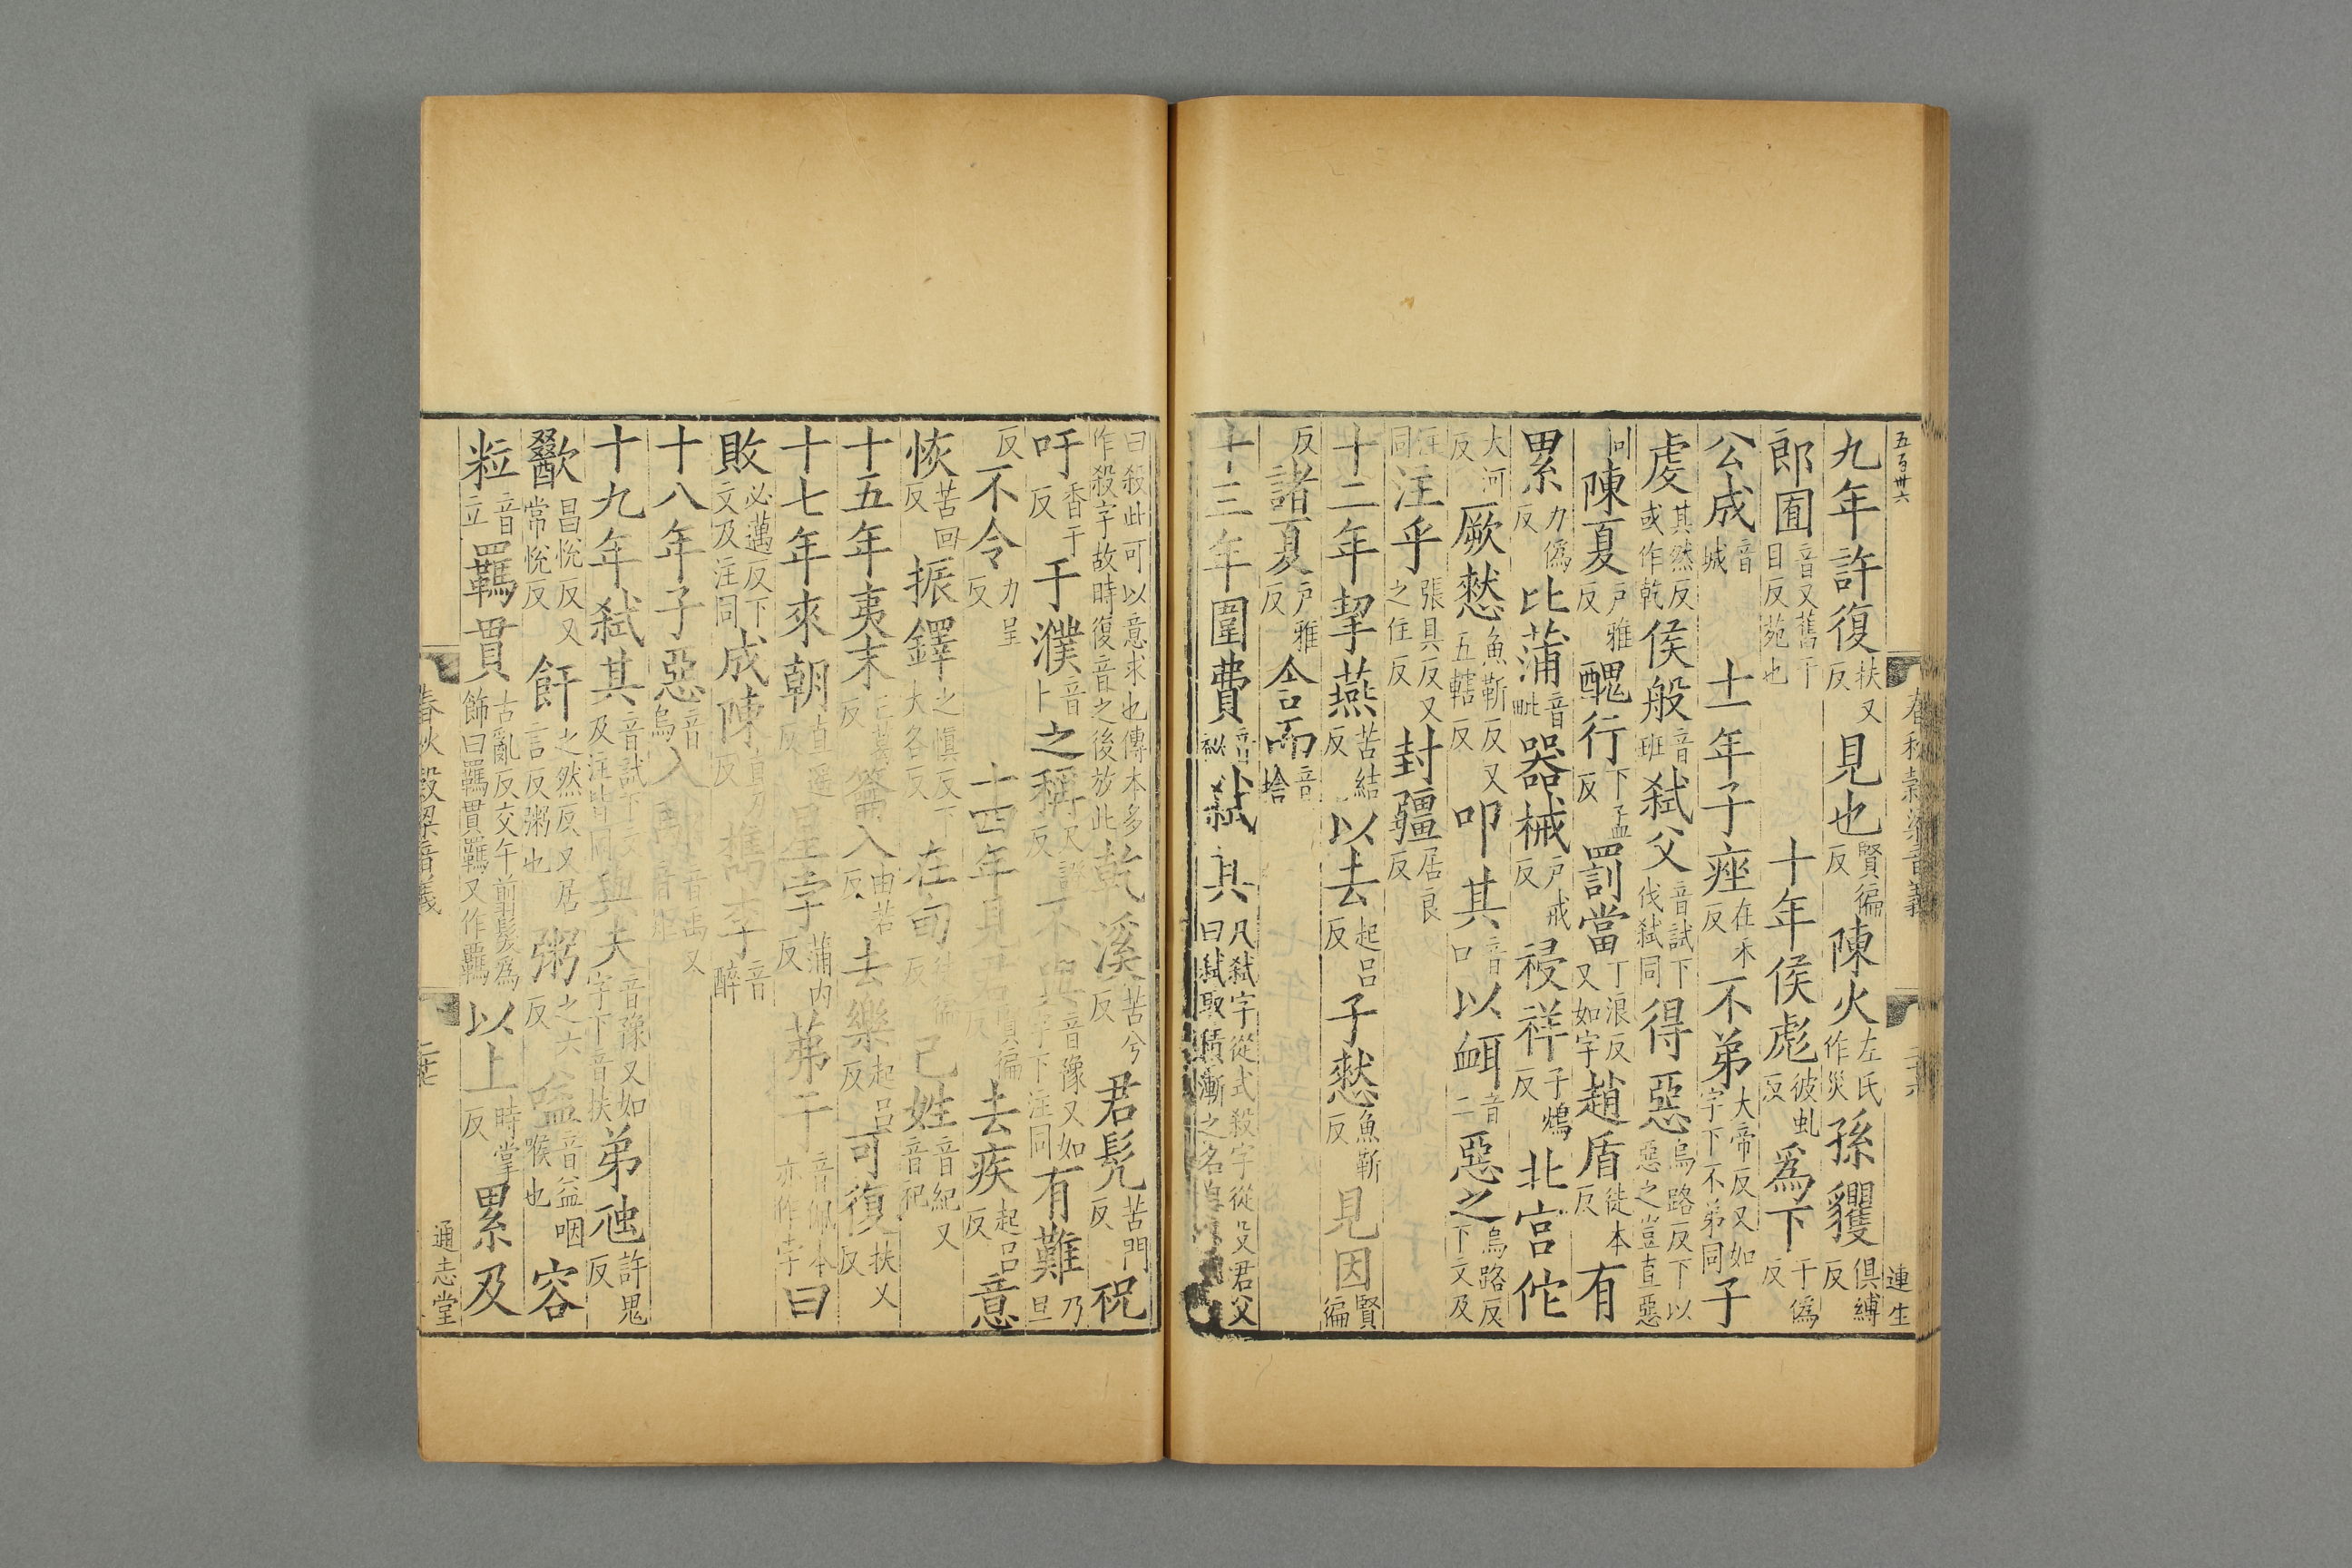 五百卅六
九年許復扶又反見也賢徧反陳火左氏作災孫貜俱縛反
郎囿音又舊于目反苑也十年侯彪彼虬反爲下于僞反
公成音城十一年子痤在禾反不弟大帝反又如字下不弟同子
虔其然反或作乾侯般音班弑父音試下伐弑同得惡烏路反下以惡之豈直惡
同陳夏戶雅反醜行下孟反罰當丁浪反又如字趙盾徒本反有
累力僞反比蒲音毗器械戶戒反祲祥子鴆反北宮佗
大河反厥憖魚靳反又五轄反叩其音口以衈音二惡之烏路反下文及
注同注乎張具反又之住反封疆居良反
十二年挈燕苦結反以去起呂反子憖魚靳反見因賢徧
反諸夏戶雅反舍而音捨
十三年圍費音祕弑其凡弑字從式殺字從殳君父曰弑取積漸之名
春秋穀梁音義
連生
曰殺此可以意求也傳本多作殺字故時復音之後放此乾溪苦兮反君髡苦門反祝
吁香于反于濮音卜之稱尺證反不與音豫又如字下注同有難乃旦
反不令力呈反十四年見君賢徧反去疾起呂反意
恢苦回反振鐸之愼反下大各反在甸徒徧反己姓音紀又音祀
十五年夷末籥入由若反去樂起呂反可復扶又反
十七年來朝直遥反星孛蒲內反茀于音佩本亦作孛曰
敗必邁反下文及注同成陳直刃反檇李音醉
十八年子惡音烏入
十九年弑其音試下及注皆同與夫音豫又如字下音扶弟虺許鬼反
歠昌悅反又常悅反飦之然反又居言反粥也粥之六反嗌音益咽喉也容
粒音立羈貫古亂反交午翦髮爲飾曰羈貫羈又作羇以上時掌反累及
春秋穀梁音義
通志堂